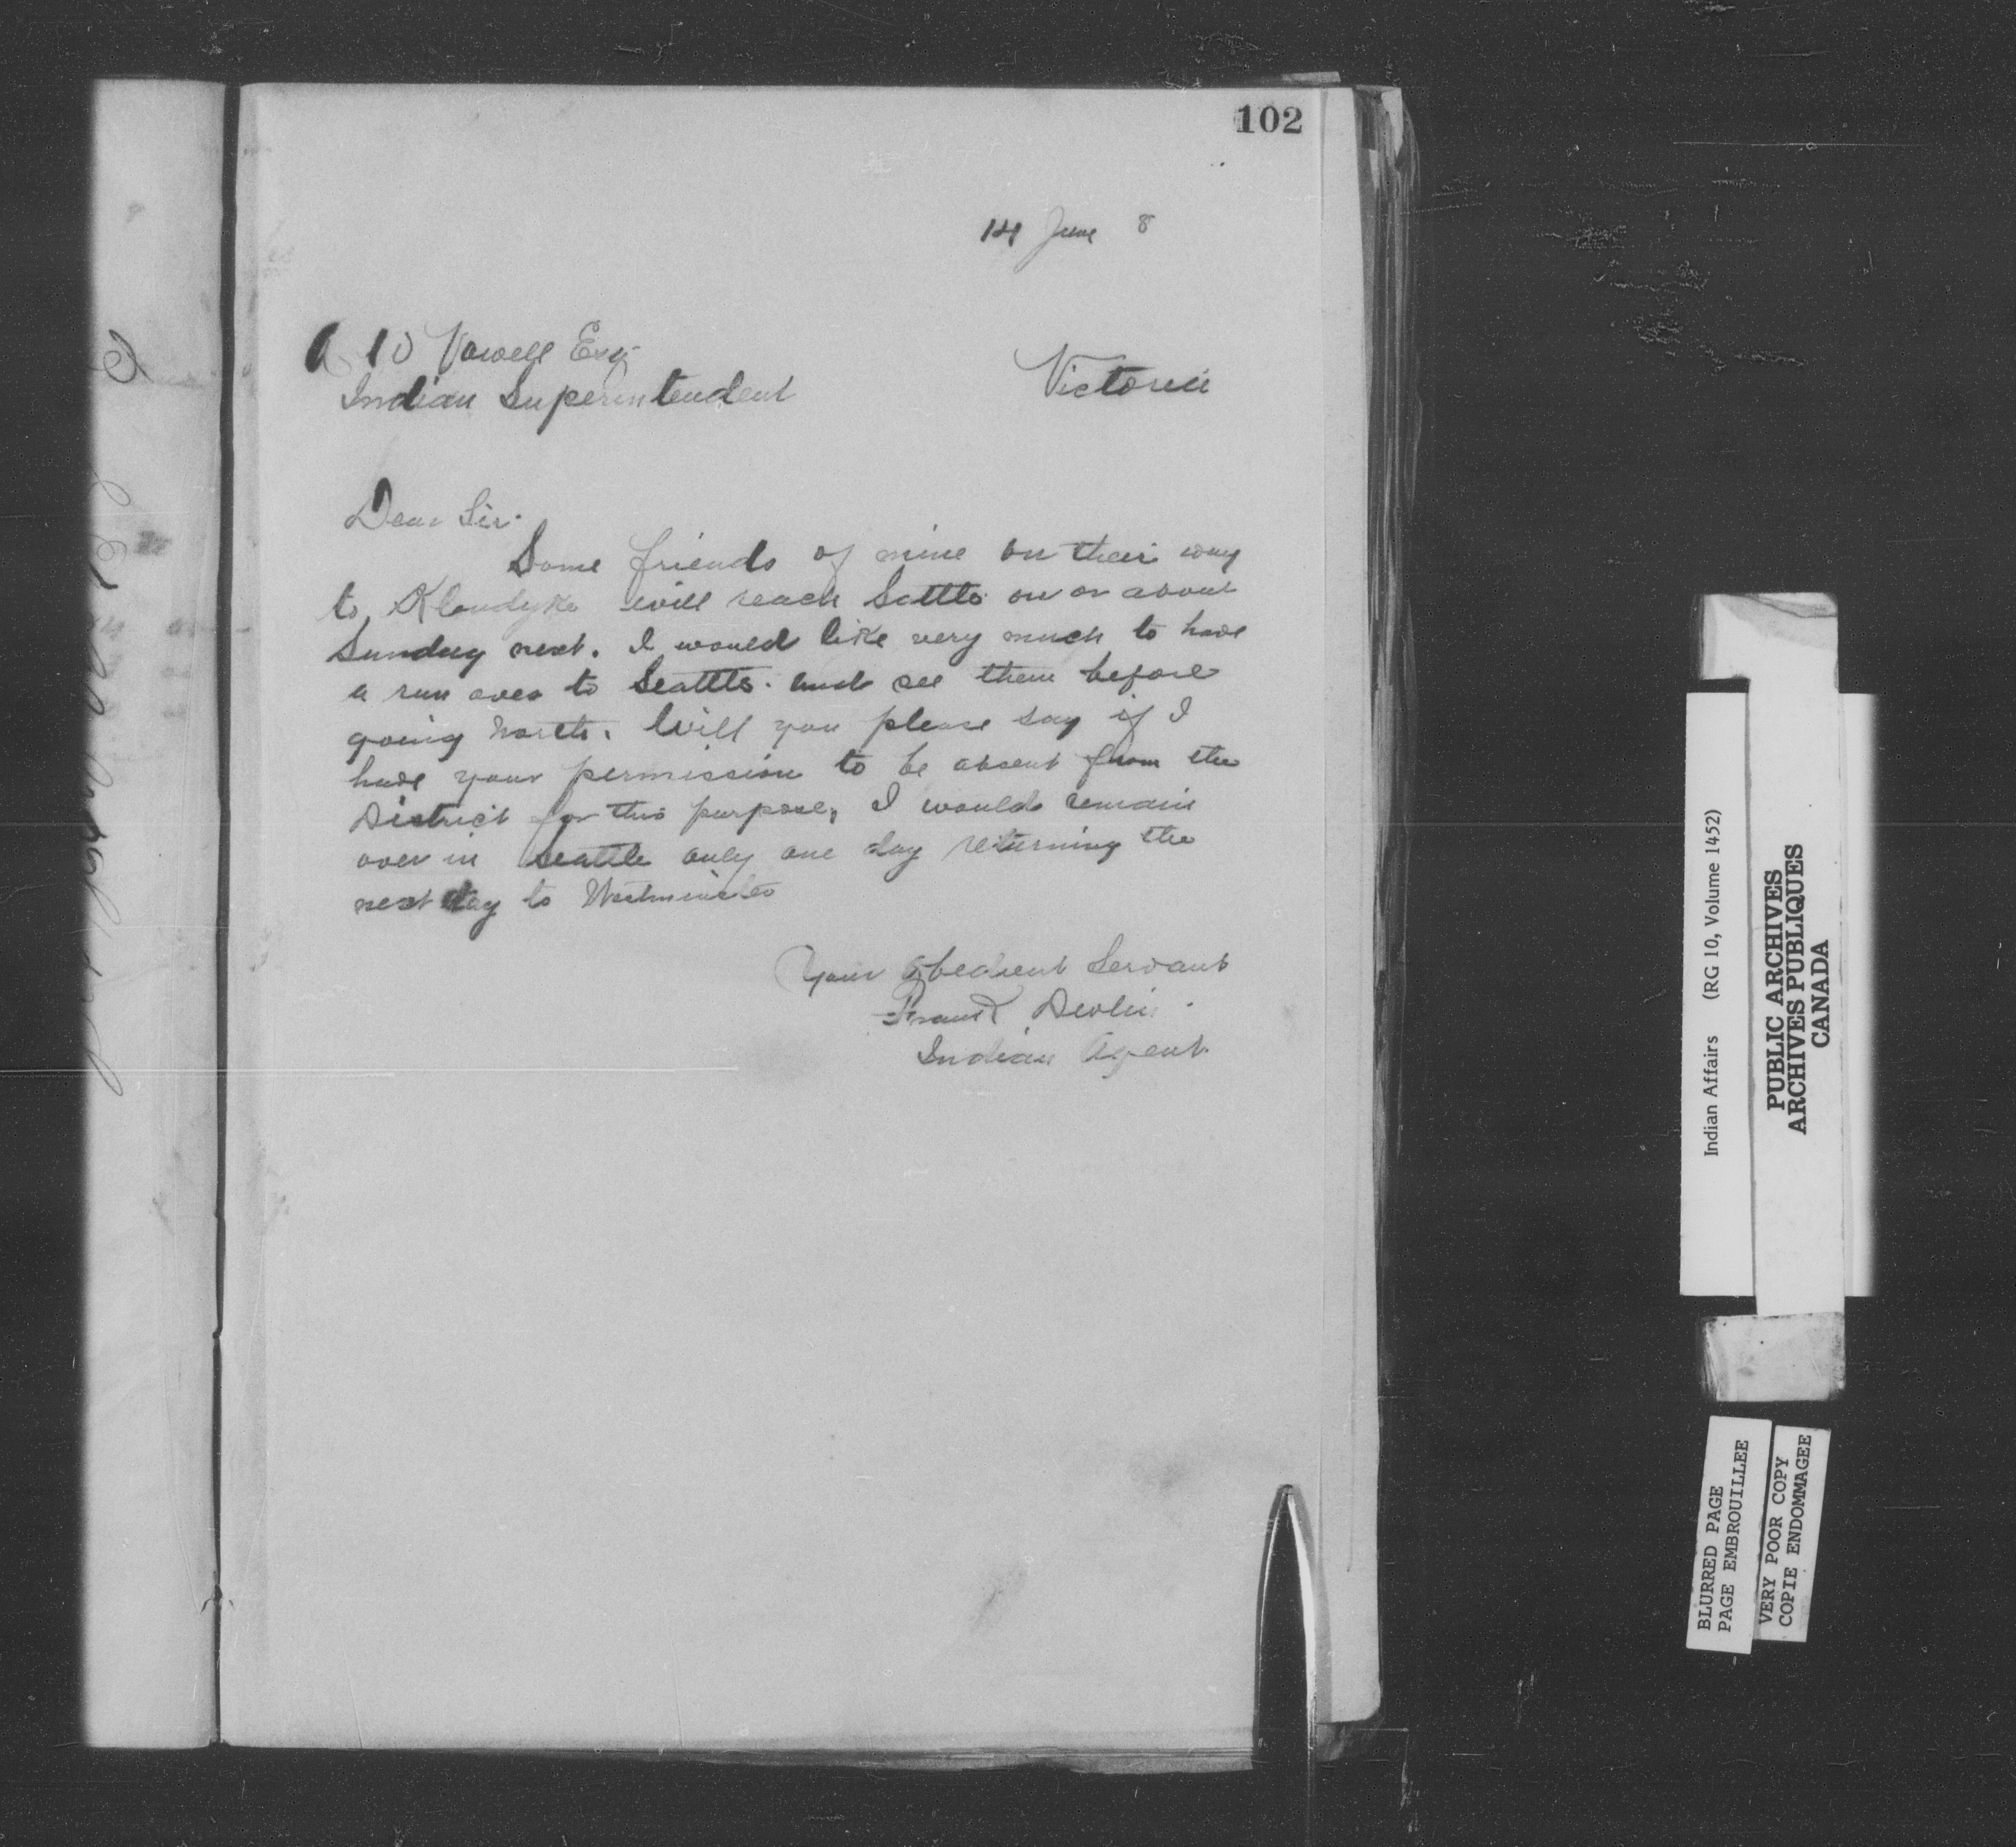 102
14 June 8
A W Vowell Esq
Indian Superintendent
Victoria
Dear Sir.
Some friends of mine on their way
to Klondyke will reach Settle on or about
Sunday next. I would like very much to have
a run over to Seattle. and see them before
going North. Will you please say if I
have your permission to be absent from the
District for this purpose, I would remain
over in Seattle only one day returning the
next day to Westminster
Your Obedient Servant
Frank Devlin
Indian Agent.
Indian Affairs (RG 10, Volume 1452)
PUBLIC ARCHIVES
ARCHIVES PUBLIQUES
CANADA
BLURRED PAGE
PAGE EMBROUILLEE
VERY POOR COPY
COPIE ENDOMMAGEE